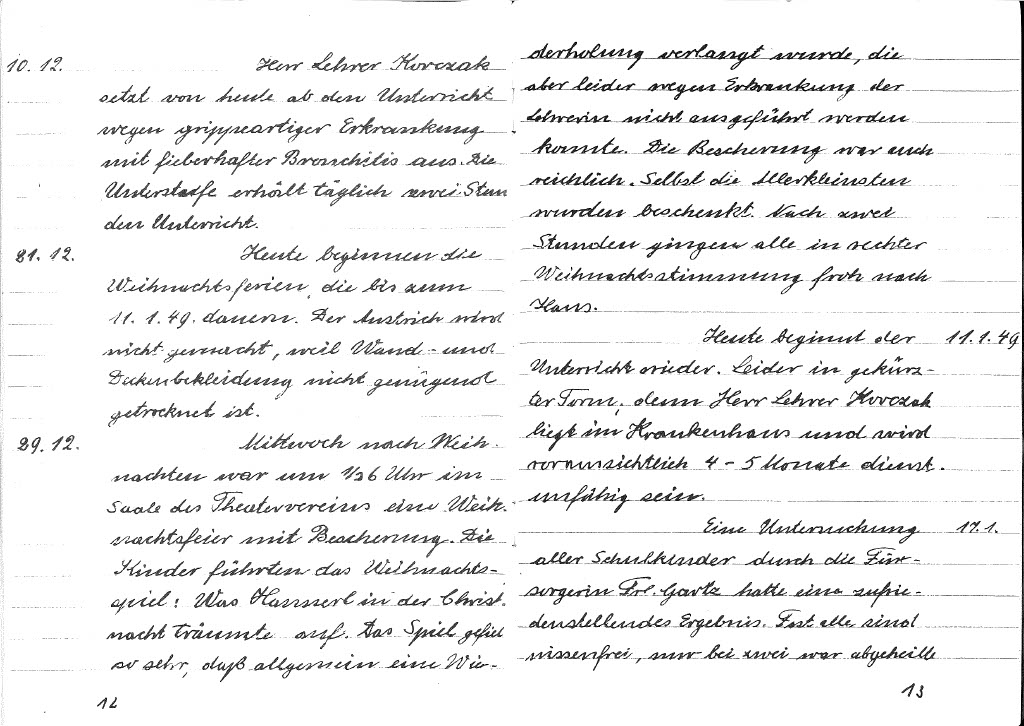 10. 12. Herr Lehrer Korczak
setzt von heute ab den Unterricht
wegen grippeartiger Erkrankung
mit fieberhafter Bronchitis aus. Die
Unterstufe erhält täglich zwei Stun
den Unterricht.
21. 12. Heute beginnen die
Weihnachtsferien, die bis zum
11. 1. 49. dauern. Der Anstrich wird
nicht gemacht, weil Wand- und
Deckenbekleidung nicht genügend
getrocknet ist.
29. 12. Mittwoch nach Weih-
nachten war um 1/26 Uhr im
Saale des Theatervereins eine Weih-
nachtsfeier mit Bescherung. Die
Kinder führten das Weihnachts-
spiel: Was Hannerl in der Christ-
nacht träumte auf. Das Spiel gefiel
so sehr, daß allgemein eine Wie-
12
derholung verlangt wurde, die
aber leider wegen Erkrankung der
Lehrerin nicht ausgeführt werden
konnte. Die Bescherung war auch
reichlich. Selbst die Allerkleinsten
wurden beschenkt. Nach zwei
Stunden gingen alle in rechter
Weihnachtsstimmung froh nach
Haus.
Heute beginnt der 11. 1. 49
Unterricht wieder. Leider in gekürz-
ter Form, denn Herr Lehrer Korczak
liegt im Krankenhaus und wird
voraussichtlich 4 - 5 Monate dienst-
unfähig sein.
Eine Untersuchung 17. 1.
aller Schulkinder durch die Für-
sorgerin Frl. Gartz hatte eine zufrie-
denstellendes Ergebnis. Fast alle sind
nissenfrei, nur bei zwei war abgeheilte
13